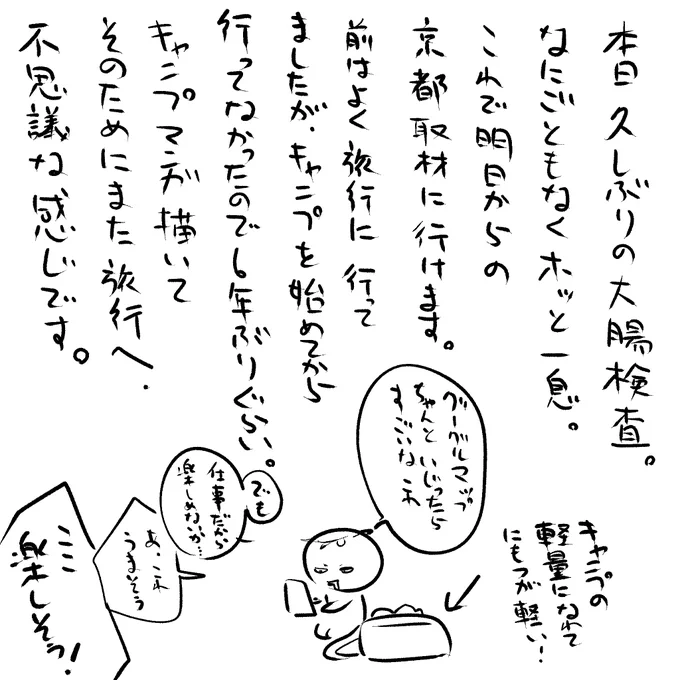 本日久しぶりの大腸検査。
なにごともなくホッと一息。
これで明日からの
京都取材に行けます。
前はよく旅行に行って
ましたが、キャンプを始めてから
行ってなかったので6年ぶりぐらい。
キャンプマンガ描いて
そのためにまた旅行へ。
不思議な感じです。
グーグルマップ
ちゃんといじったら
すごいな これ
キャンプの
軽量になれて
にもつが軽い!
でも
仕事だから
楽しめないか…
あ、これ
うまそう
ここ
楽しそう!